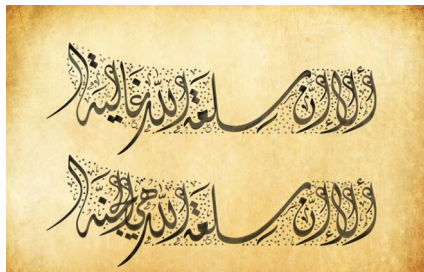 ألا إن سلعة الله غالية
ألا إن سلعة الله هي الجنة